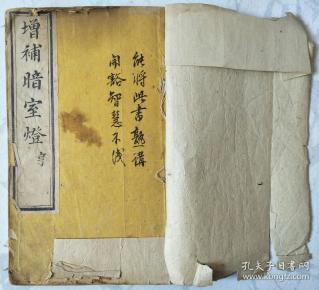 增補暗室燈
能將此書熟講
開豁智慧不淺
孔夫子旧书网